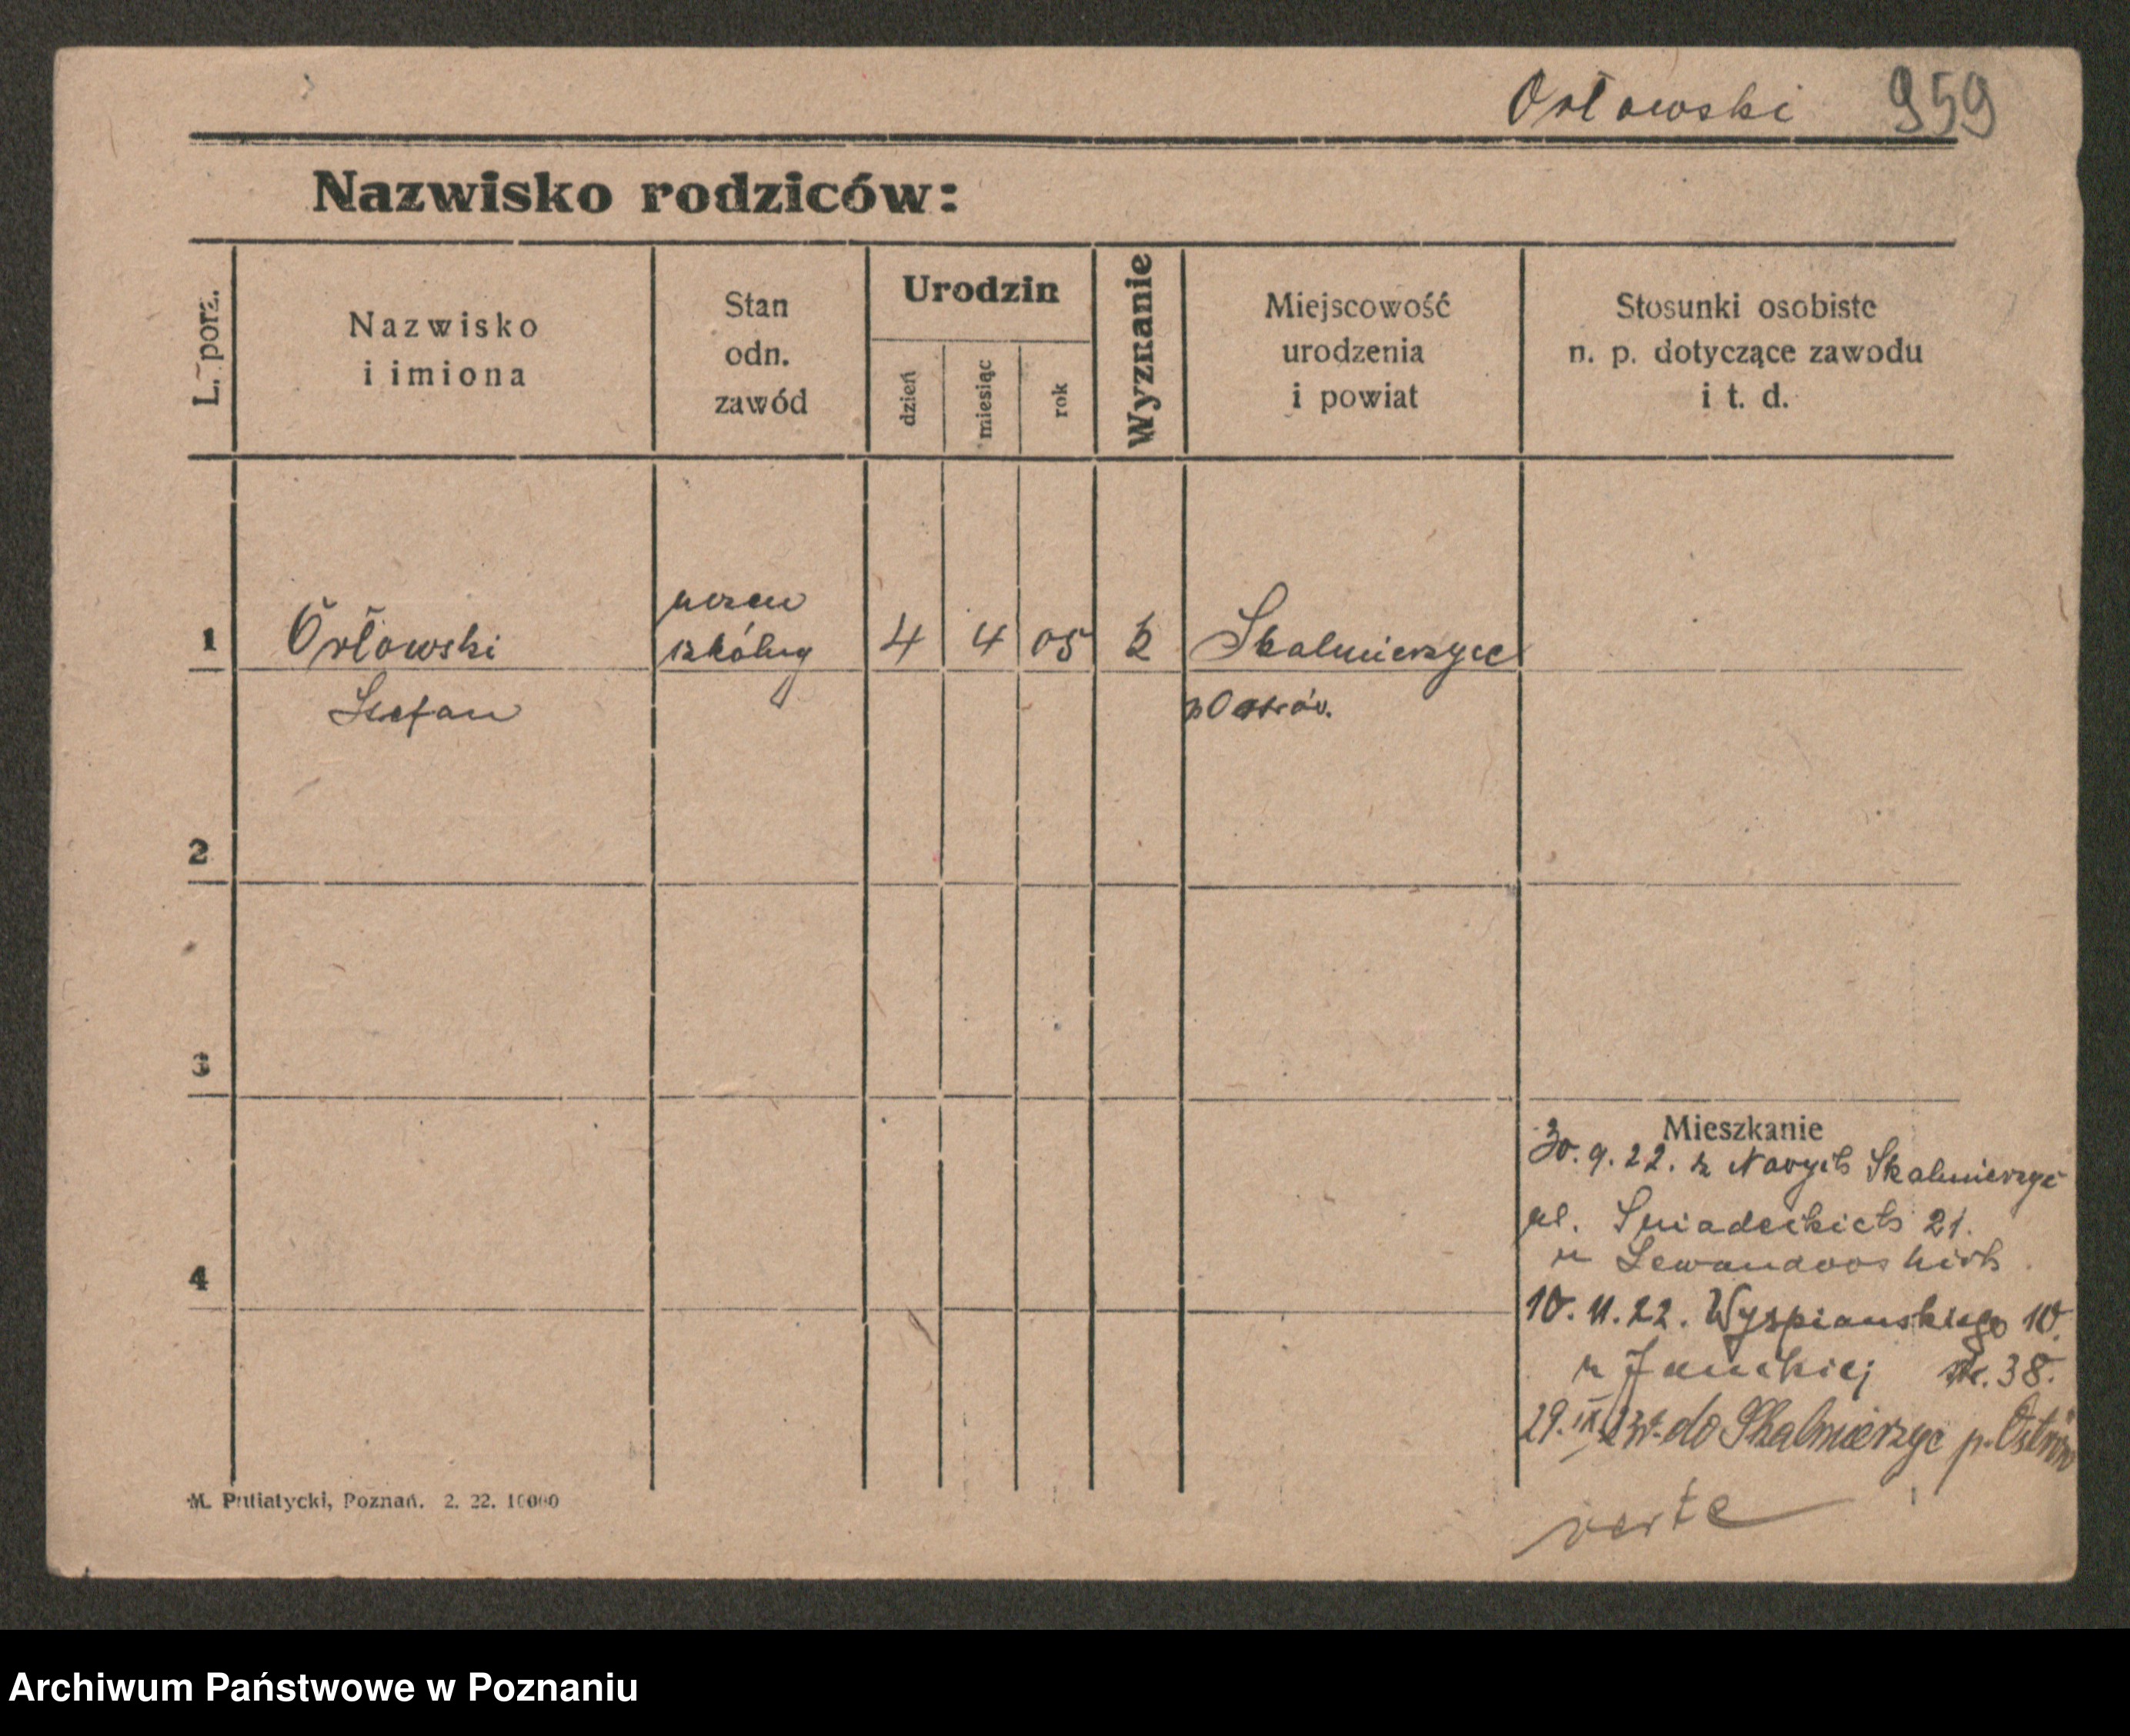 Orłowski 959
Nazwisko rodziców:
L. porz.
Nazwisko
i imiona
Stan
odn.
zawód
Urodzin
dzień
miesiąc
rok
Wyznanie
Miejscowość
urodzenia
i powiat
Stosunki osobiste
n. p. dotyczące zawodu
i t. d.
uczeń
1 Orłowski szkólny 4 4 05 k Skalmierzyce
Stefan p Ostrów.
2
3
Mieszkanie
30. 9. 22. z Nowych Skalmierzyc
ul. Sniadeckich 21.
u Lewandowskich
4
10. 11. 22. Wyspianskiego 10.
u 38.
29. IX. do Skalmierzyc p. Ostrów
verte
M. Putiatycki, Poznań. 2. 22. 10000
Archiwum Państwowe w Poznaniu